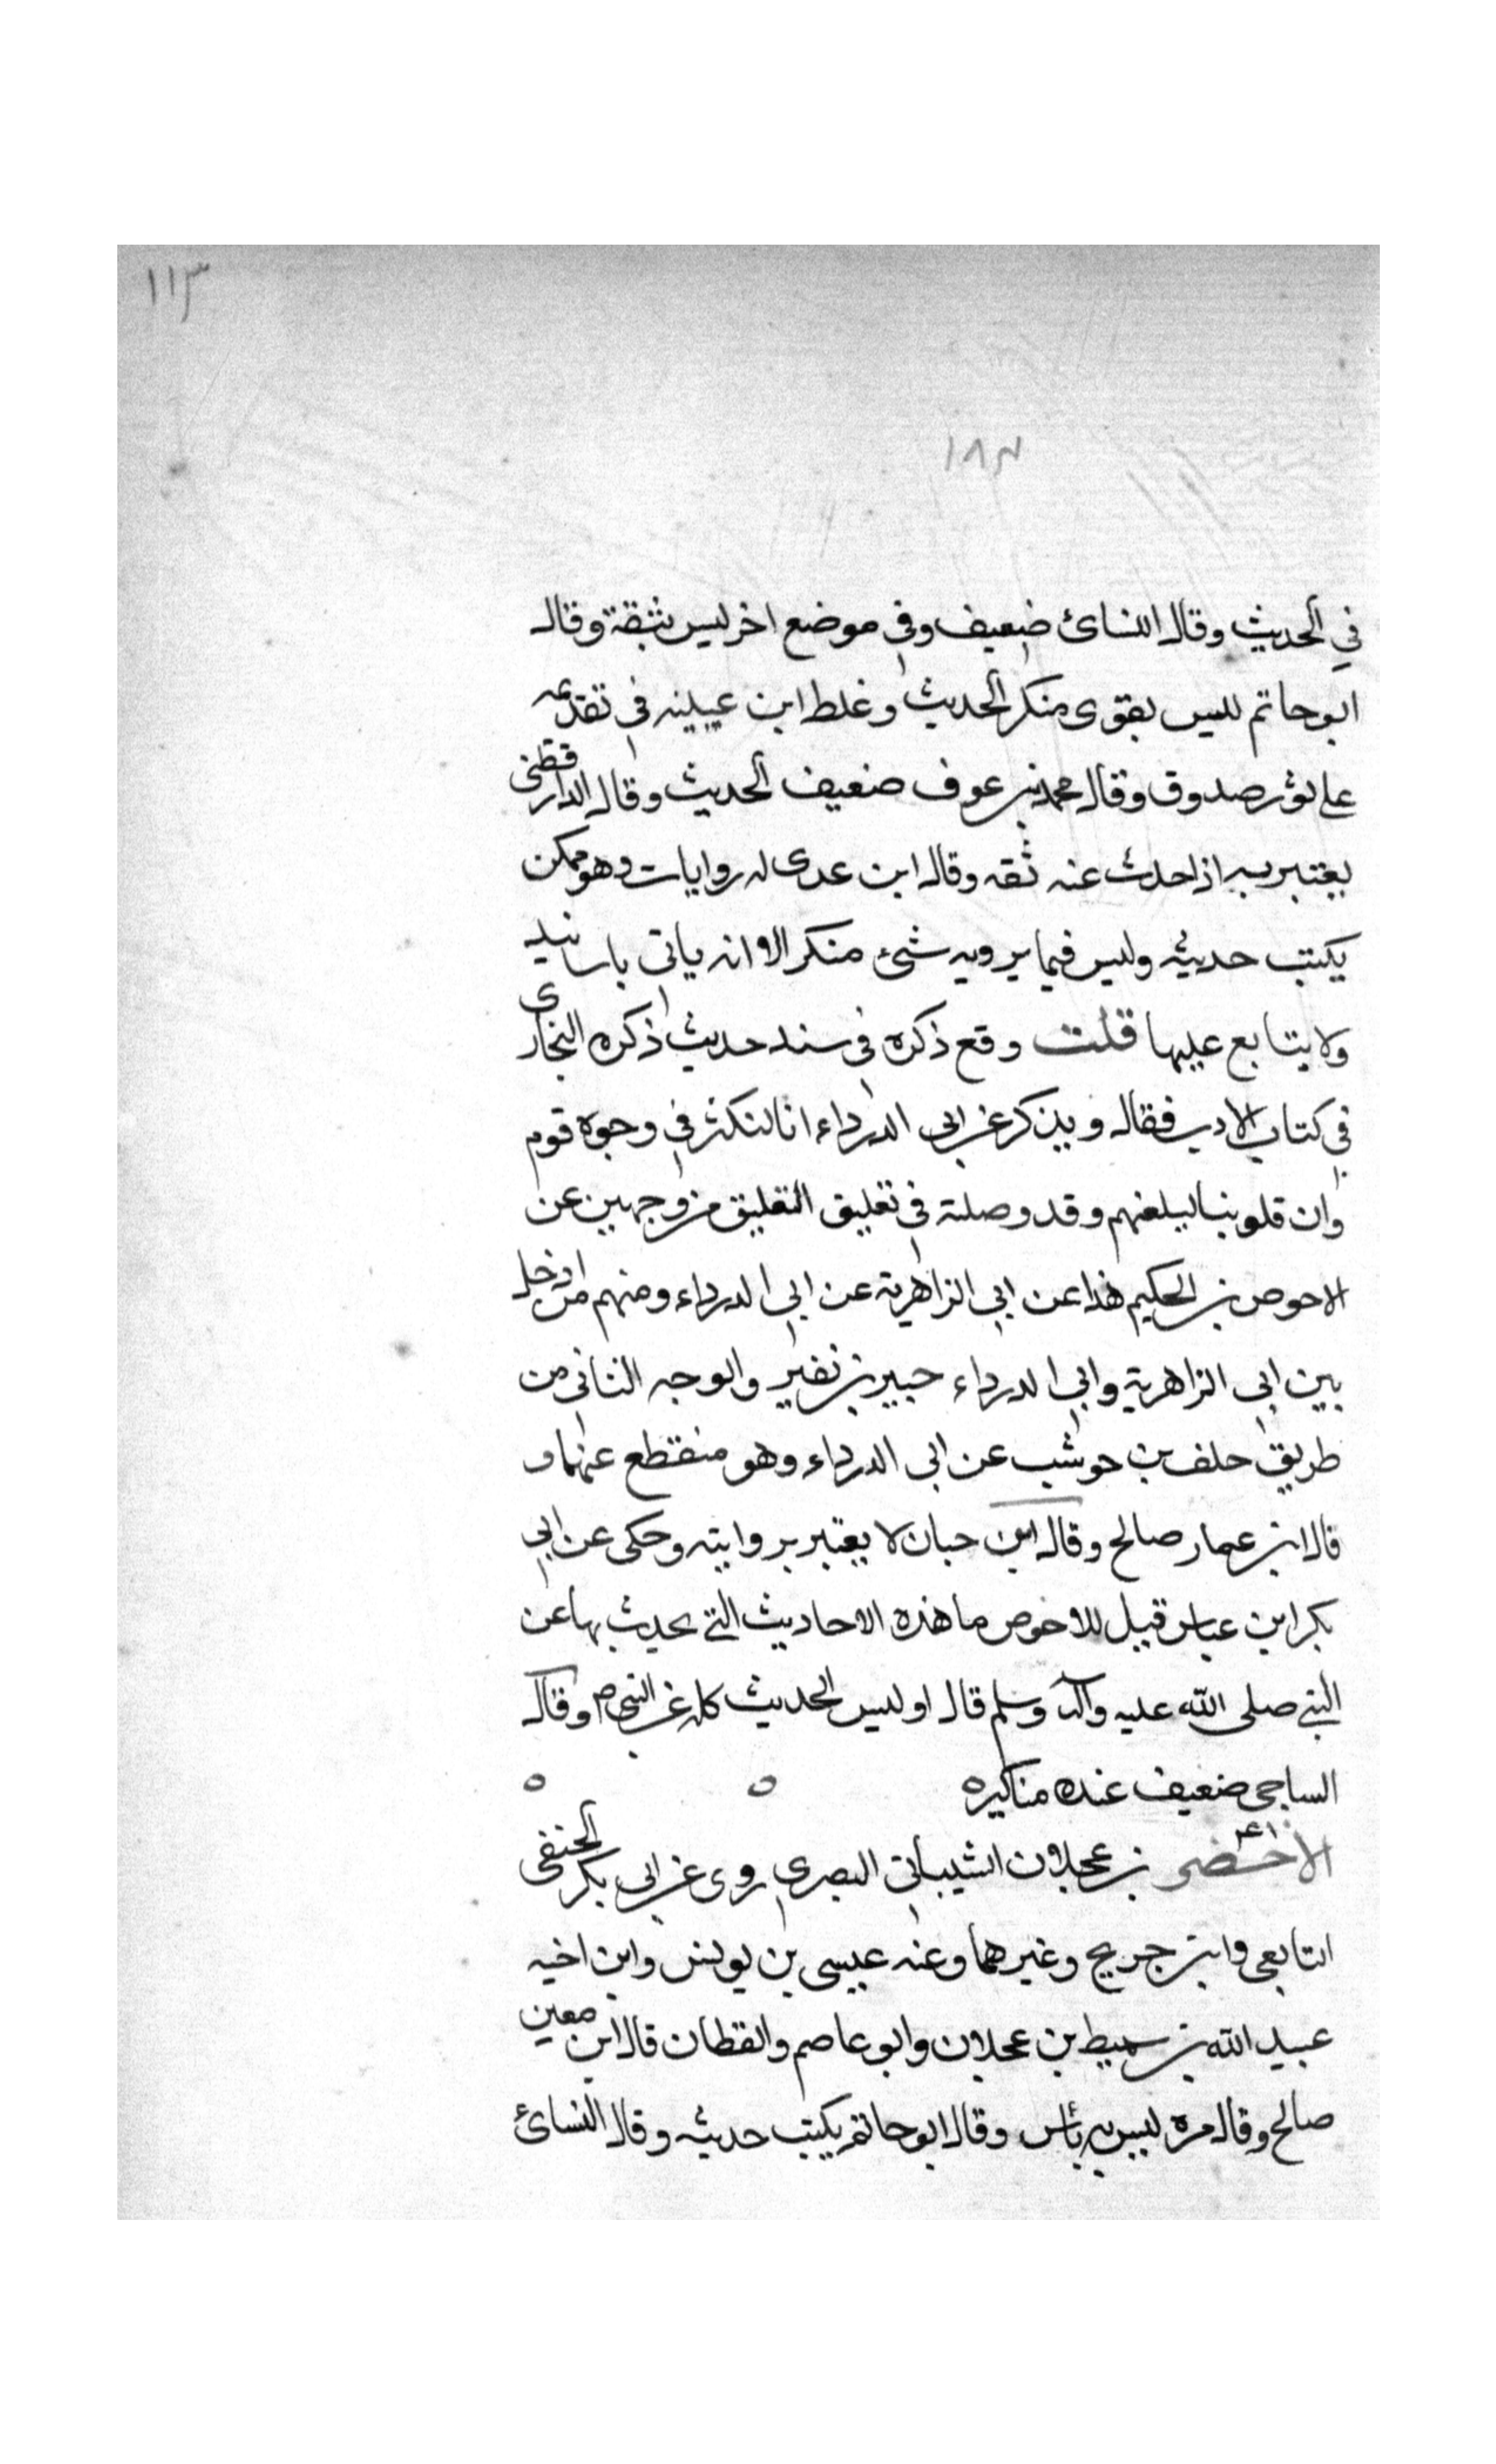 ١١٣
١٨٣
في الحديث وقال النسائ ضعيف وفي موضع اخر ليس بثقة وقال
ابو حاتم ليس بقوى منكر الحديث وغلط ابن عيينه في تقديمه
على ثور صدوق وقال محمد بن عوف ضعيف الحديث وقال الدارقطنى
يعتبر به اذا حدث عنه ثقه وقال ابن عدى له روايات وهو ممكن
يكتب حديثه وليس فيما يرويه شئ منكر الا انه ياتى باسانيد
ولا يتابع عليها قلت وقع ذكره في سند حديث ذكره البخارى
في كتاب الادب فقال ويذكر عن ابى الدرداء انا لنكثر في وجوه قوم
وان قلوبنا ليلغنهم وقد وصلته في تغليق التعليق من وجهين عن
الاحوص بن الحكيم هذا عن ابى الزاهرية عن ابى الدرداء ومنهم من ادخل
بين ابى الزاهرية وابى الدرداء جبير بن نفير والوجه الثانى من
طريق خلف بن حوشب عن ابى الدرداء وهو منقطع عنهما و
قال ابن عمار صالح وقال ابن حبان لا يعتبر بروايته وحكى عن ابى
بكر ابن عباس قيل للاخوص ما هذه الاحاديث التي يحدث بها عن
النبي صلى الله عليه وآله وسلم قال او ليس الحديث كله عن النبي ص وقال
الساجى ضعيف عنده مناكيره ه ه
الاخضر بن عجلان الشيباني البصري روى عن ابى بكر الحنفى
التابعى وابن جريج وغيرهما وعنه عيسى بن يونس وابن اخيه
عبيد الله بن سميط بن عجلان وابو عاصم والقطان قال ابن معين
صالح وقال مره ليس به بأس وقال ابو حاتم يكتب حديثه وقال النسائ